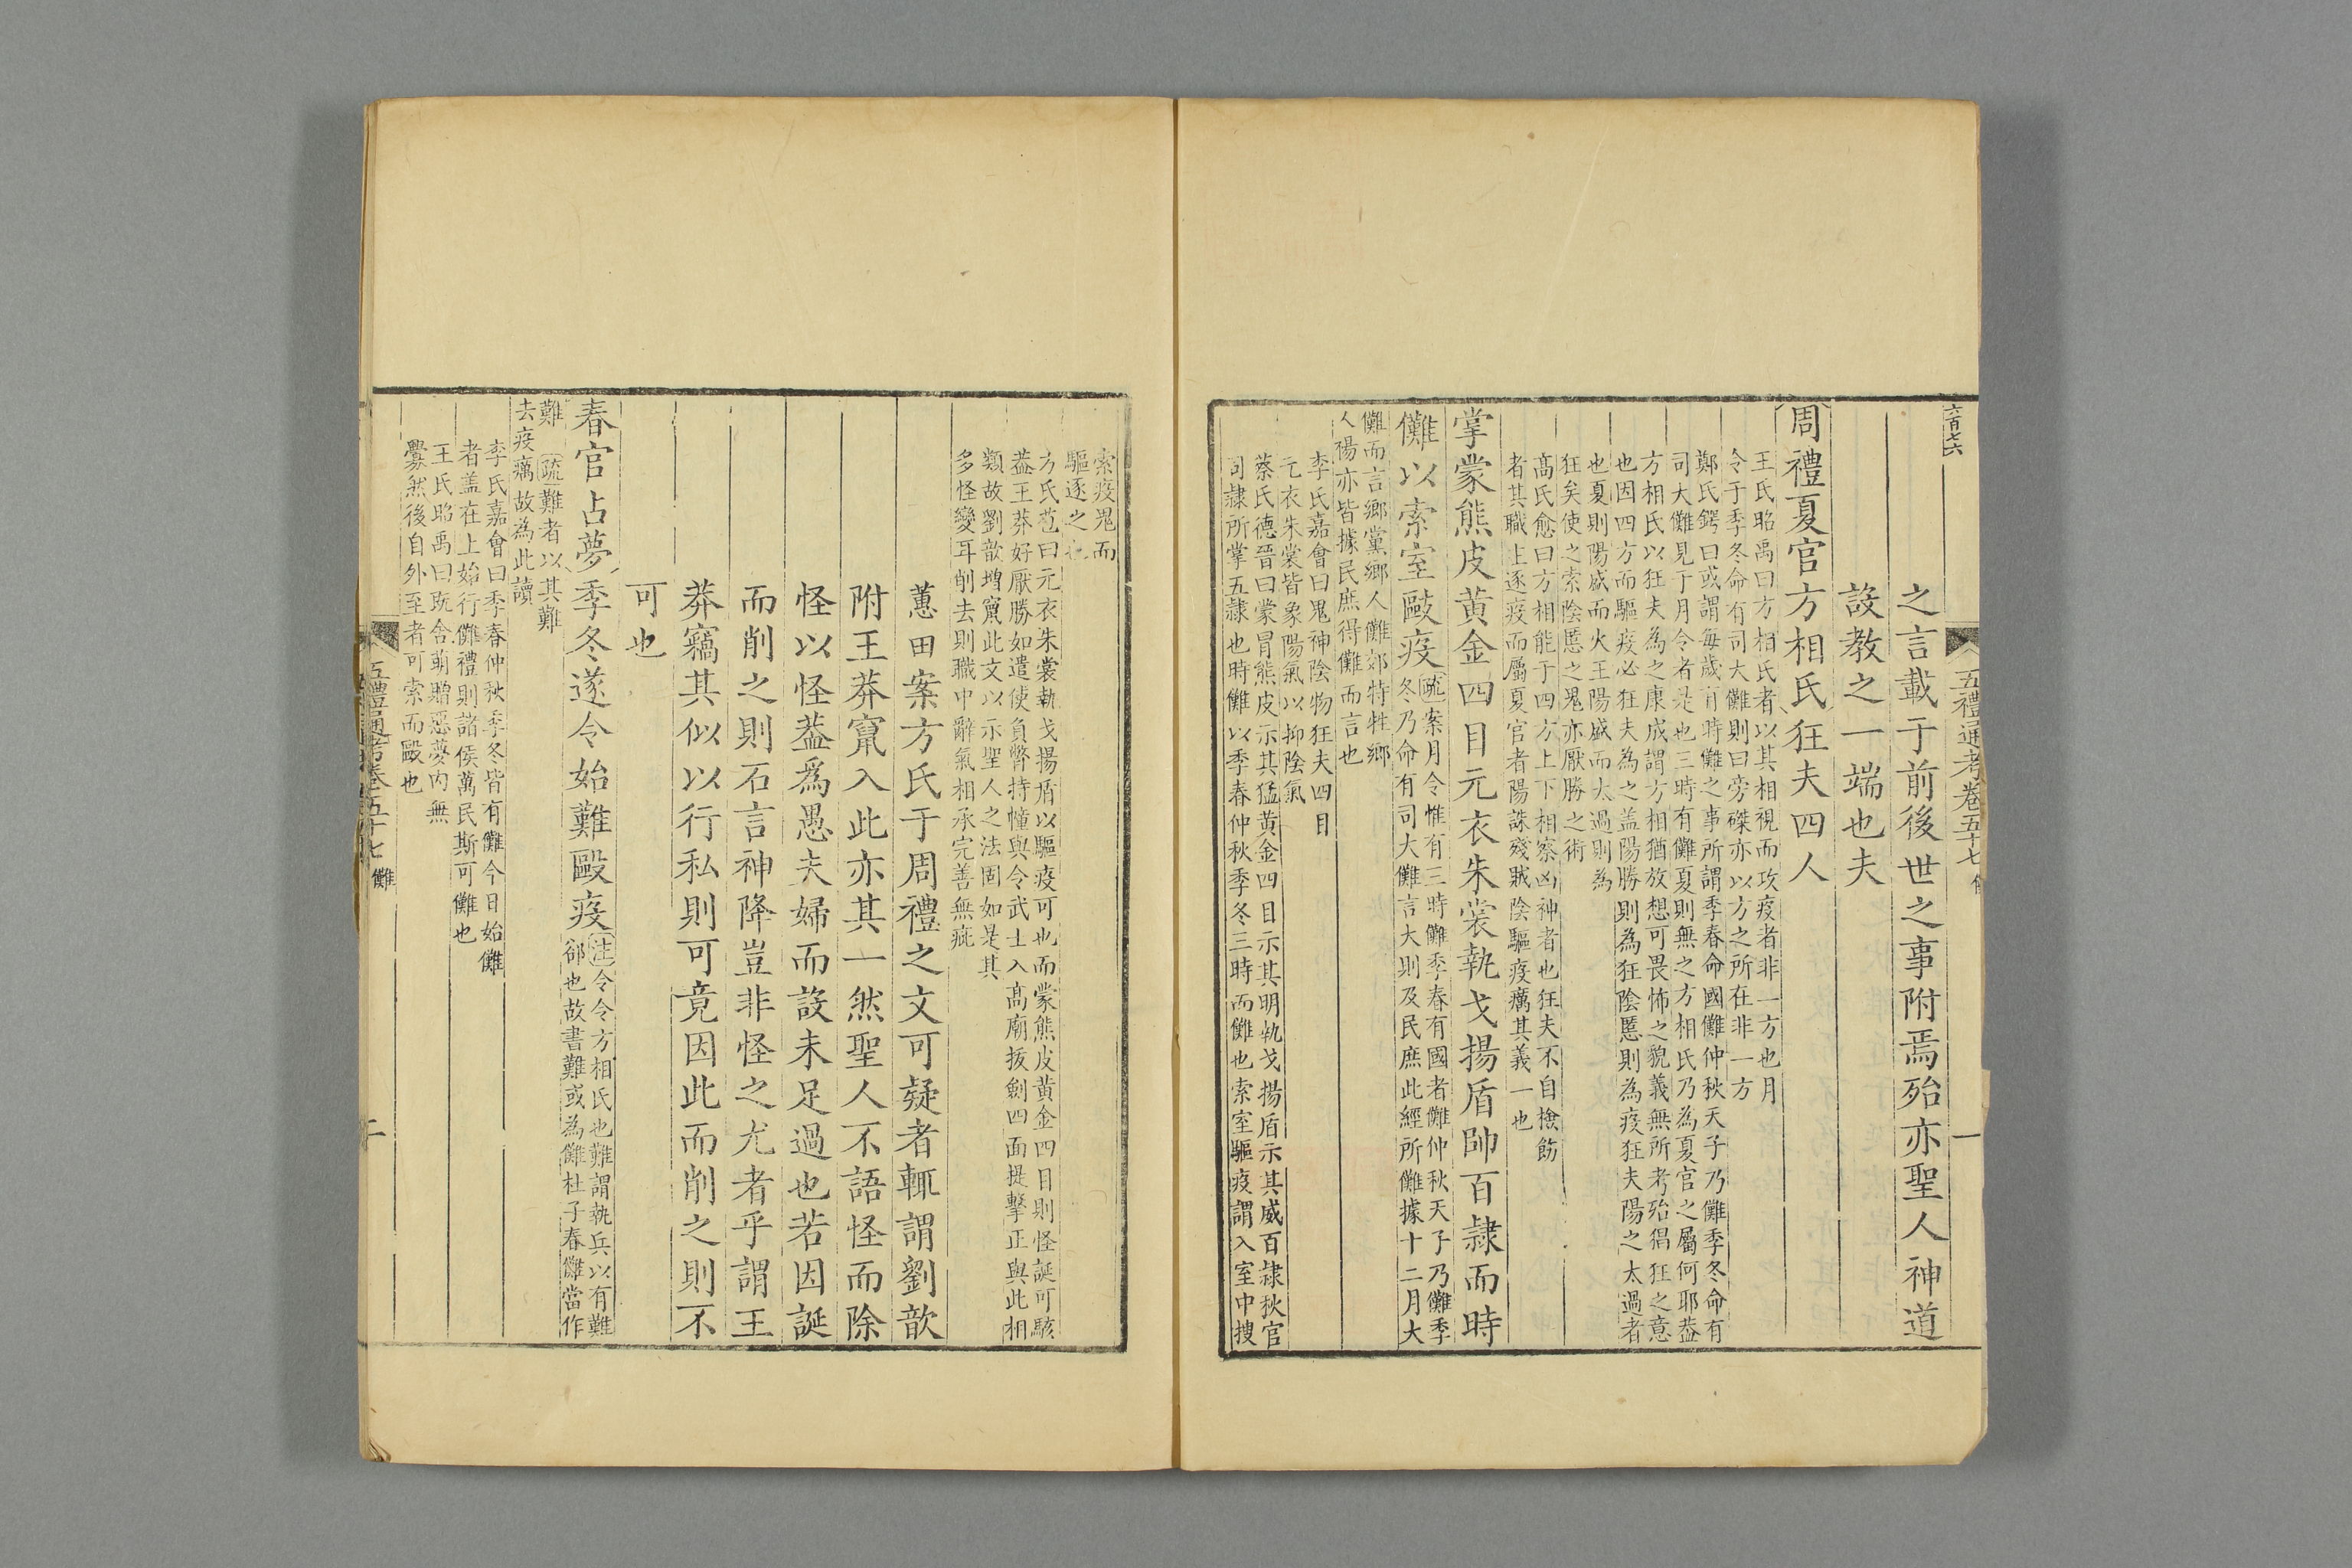 六百七六
五禮通考卷五十七
一
之言載于前後世之事附焉殆亦聖人神道
設教之一端也夫
周禮夏官方相氏狂夫四人
王氏昭禹曰方相氏者以其相視而攻疫者非一方也月
令于季冬命有司大儺則曰旁磔亦以方之所在非一方
鄭氏鍔曰或謂每歲有時儺之事所謂季春命國儺仲秋天子乃儺季冬命有
司大儺見于月令者是也三時有儺夏則無之方相氏乃為夏官之屬何耶葢
方相氏以狂夫為之康成謂方相猶放想可畏怖之貌義無所考殆猖狂之意
也因四方而驅疫必狂夫為之盖陽勝則為狂陰慝則為疫狂夫陽之太過者
也夏則陽盛而火王陽盛而太過則為
狂矣使之索陰慝之鬼亦厭勝之術
髙氏愈曰方相能于四方上下相察凶神者也狂夫不自檢飭
者其職主逐疫而屬夏官者陽誅殘賊陰驅疫癘其義一也
掌蒙熊皮黄金四目元衣朱裳執戈揚盾帥百隷而時
儺以索室毆疫
疏案月令惟有三時儺季春有國者儺仲秋天子乃儺季
冬乃命有司大儺言大則及民庶此經所儺據十二月大
儺而言鄉黨鄉人儺郊特牲鄉
人禓亦皆據民庶得儺而言也
李氏嘉會曰鬼神陰物狂夫四目
元衣朱裳皆象陽氣以抑陰氣
蔡氏德晉曰蒙冒熊皮示其猛黄金四目示其明執戈揚盾示其威百隷秋官
司隷所掌五隷也時儺以季春仲秋季冬三時而儺也索室驅疫謂入室中搜
索疫鬼而
驅逐之也
方氏苞曰元衣朱裳執戈揚盾以驅疫可也而蒙熊皮黄金四目則怪誕可駭
葢王莽好厭勝如遣使負鷩持幢與令武士入髙廟拔劍四面提擊正與此相
類故劉歆增竄此文以示聖人之法固如是其
多怪變耳削去則職中辭氣相承完善無疵
蕙田案方氏于周禮之文可疑者輒謂劉歆
附王莽竄入此亦其一然聖人不語怪而除
怪以怪葢爲愚夫婦而設未足過也若因誕
而削之則石言神降豈非怪之尤者乎謂王
莽竊其似以行私則可竟因此而削之則不
可也
春官占夢季冬遂令始難毆疫
注令令方相氏也難謂執兵以有難
郤也故書難或為儺杜子春儺當作
難疏難者以其難
去疫癘故為此讀
李氏嘉會曰季春仲秋季冬皆有儺今日始儺
者盖在上始行儺禮則諸侯萬民斯可儺也
王氏昭禹曰旣舍萌贈惡夢内無
釁然後自外至者可索而毆也
五禮通考卷五十七 儺